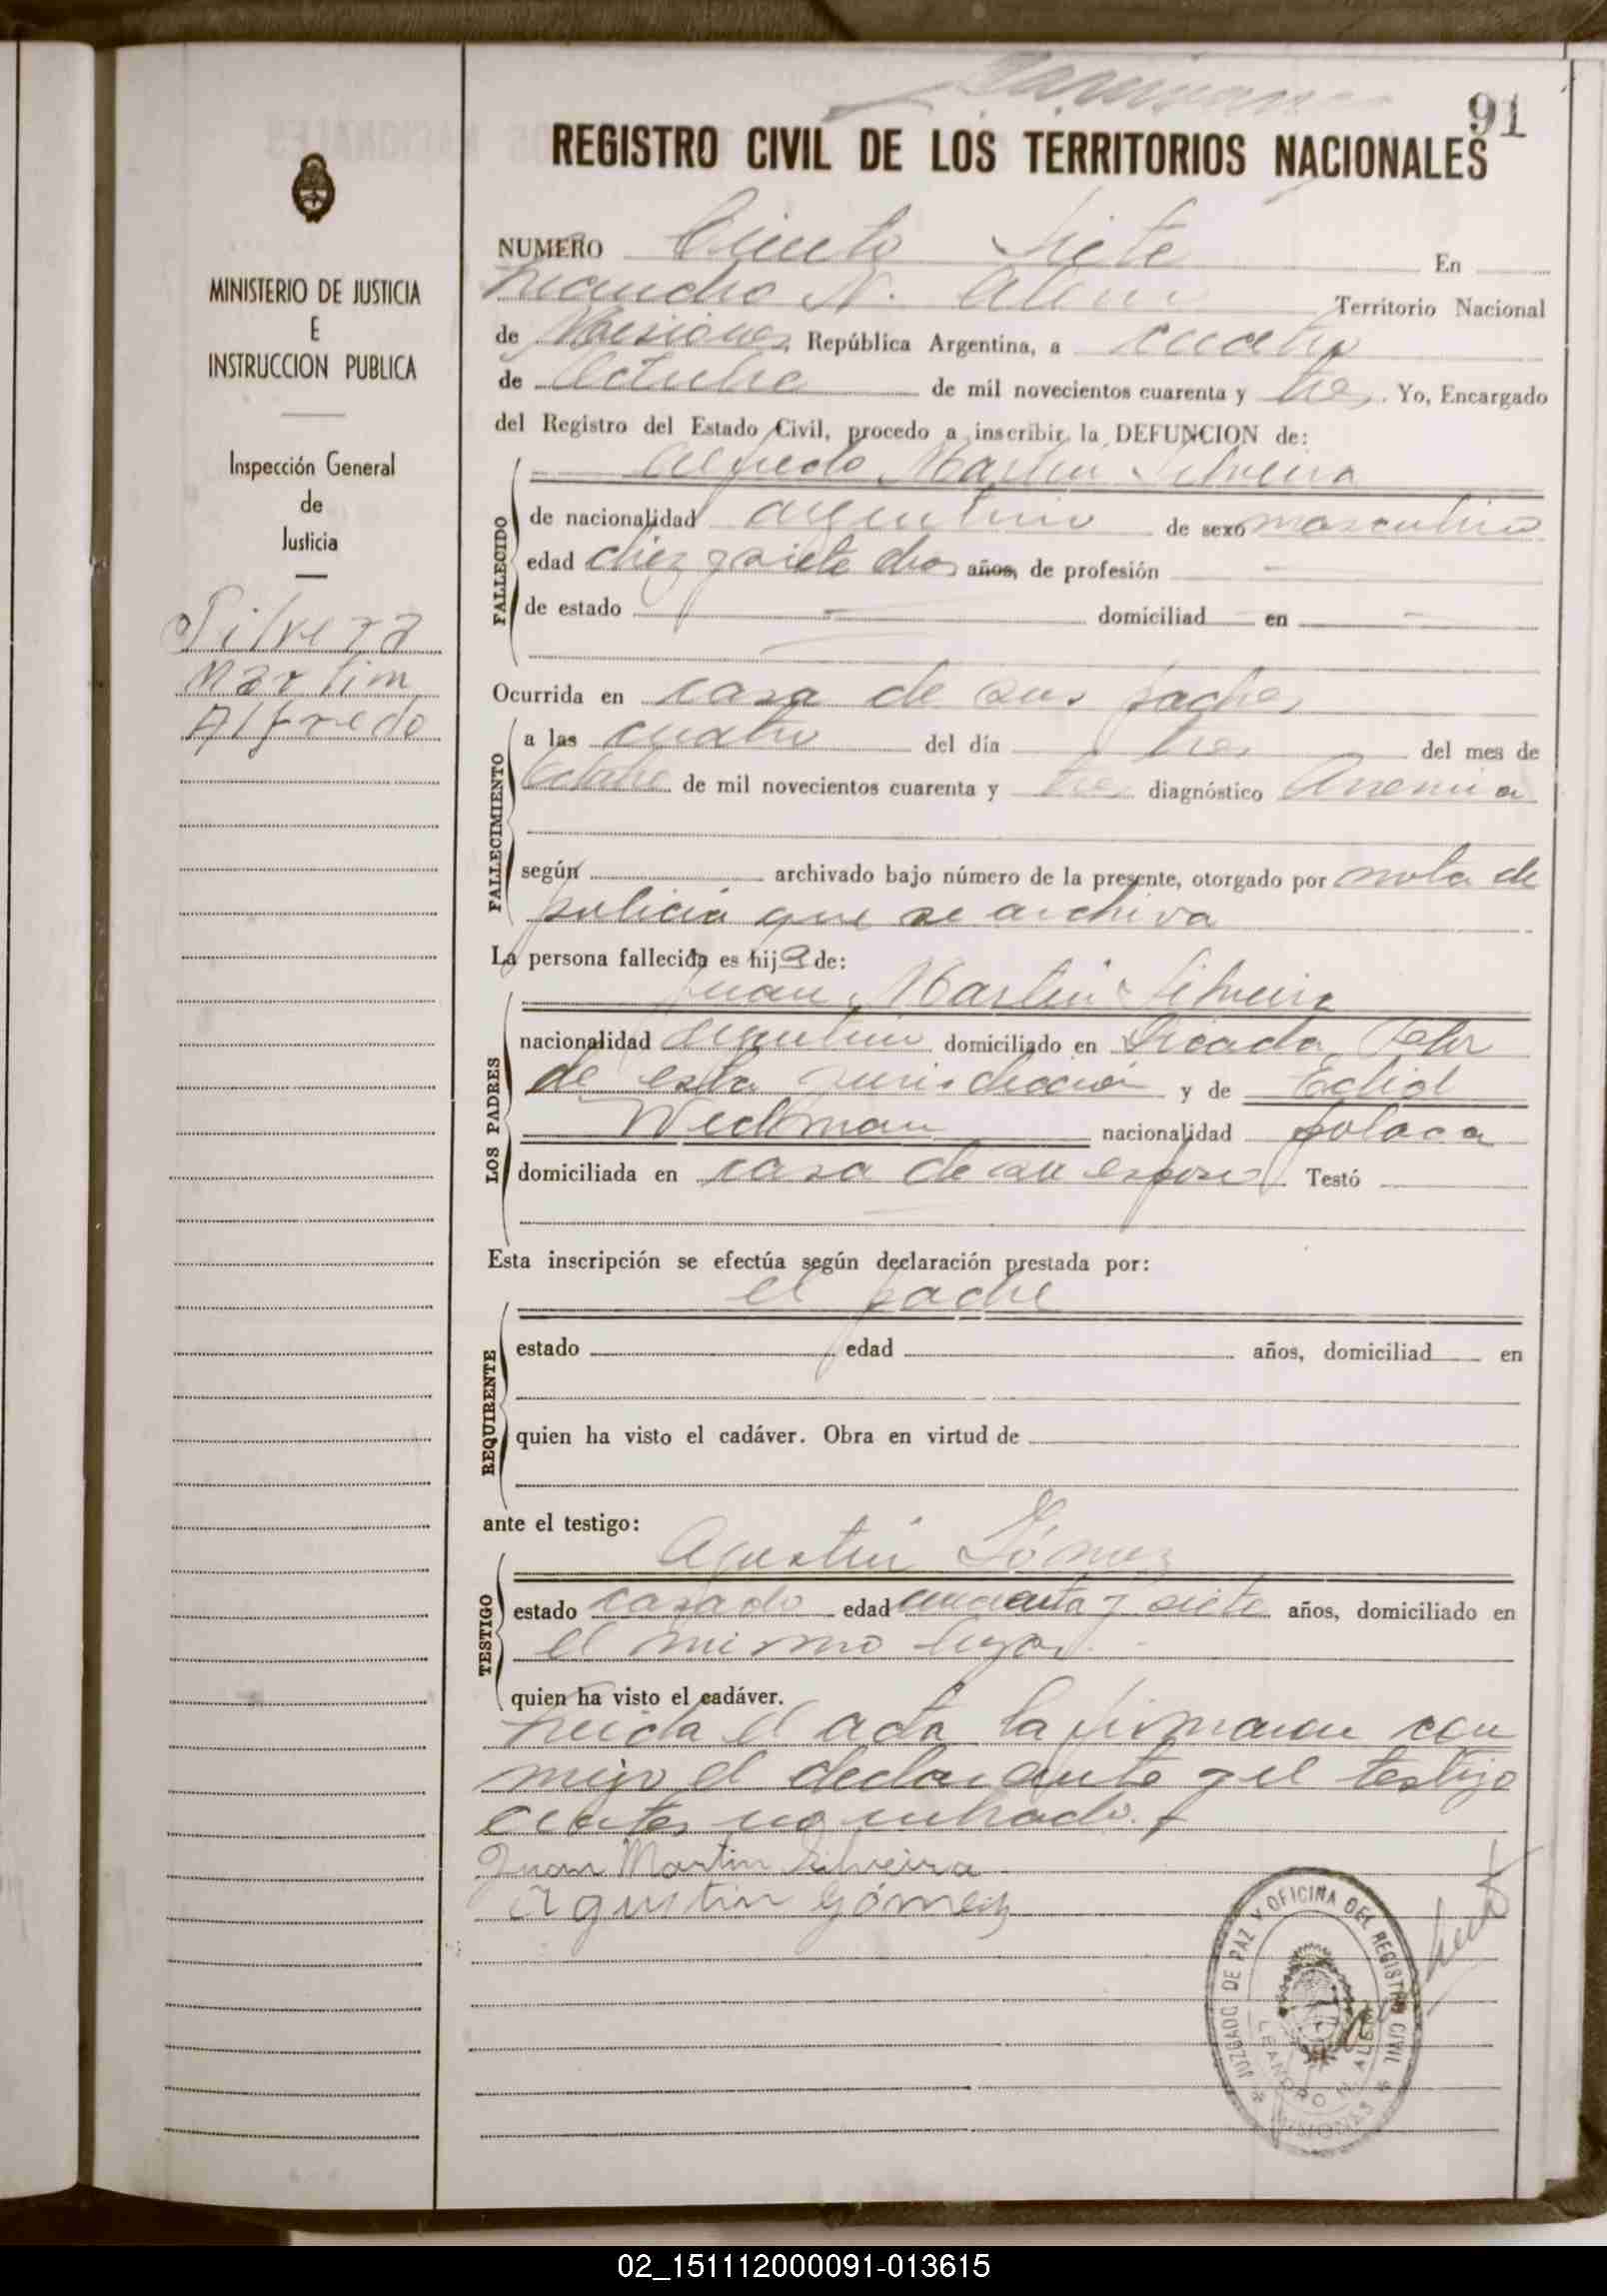 91
REGISTRO CIVIL DE LOS TERRITORIOS NACIONALES
MINISTERIO DE JUSTICIA
E
INSTRUCCION PUBLICA
Inspección General
de
Justicia
Silvera
Martim
Alfredo
NUMERO Ciento Siete En
Leandro N. Alem Territorio Nacional
de Misiones, República Argentina, a cuatro
de Octubre de mil novecientos cuarenta y tres. Yo, Encargado
del Registro del Estado Civil, procedo a inscribir la DEFUNCION de:
Alfredo Martin Silveira
FALLECIDO
de nacionalidad argentino de sexo masculino
edad diez y siete dias años, de profesión
de estado domiciliad en
Ocurrida en casa de sus padres
FALLECIMIENTO
a las cuatro del día tres del mes de
Octubre de mil novecientos cuarenta y tres diagnóstico Anemia
según archivado bajo número de la presente, otorgado por nota de
policia que se archiva
La persona fallecida es hijo de:
Juan Martin Silveira
LOS PADRES
nacionalidad argentino domiciliado en Picada
de esta jurisdiccion y de
nacionalidad polaca
domiciliada en casa de su esposo Testó
Esta inscripción se efectúa según declaración prestada por:
el padre
REQUIRENTE
estado edad años, domiciliad en
quien ha visto el cadáver. Obra en virtud de
ante el testigo:
Agustin Gómez
TESTIGO
estado casado edad cuarenta y siete años, domiciliado en
el mismo lugar
quien ha visto el cadáver.
Leida el acta la firmaron con
migo el declarante y el testigo
antes nombrado.
Juan Martin Silveira
Agustin Gómez
JUZGADO DE PAZ Y OFICINA DEL REGISTRO CIVIL
LEANDRO N. ALEM
MISIONES
02_151112000091-013615